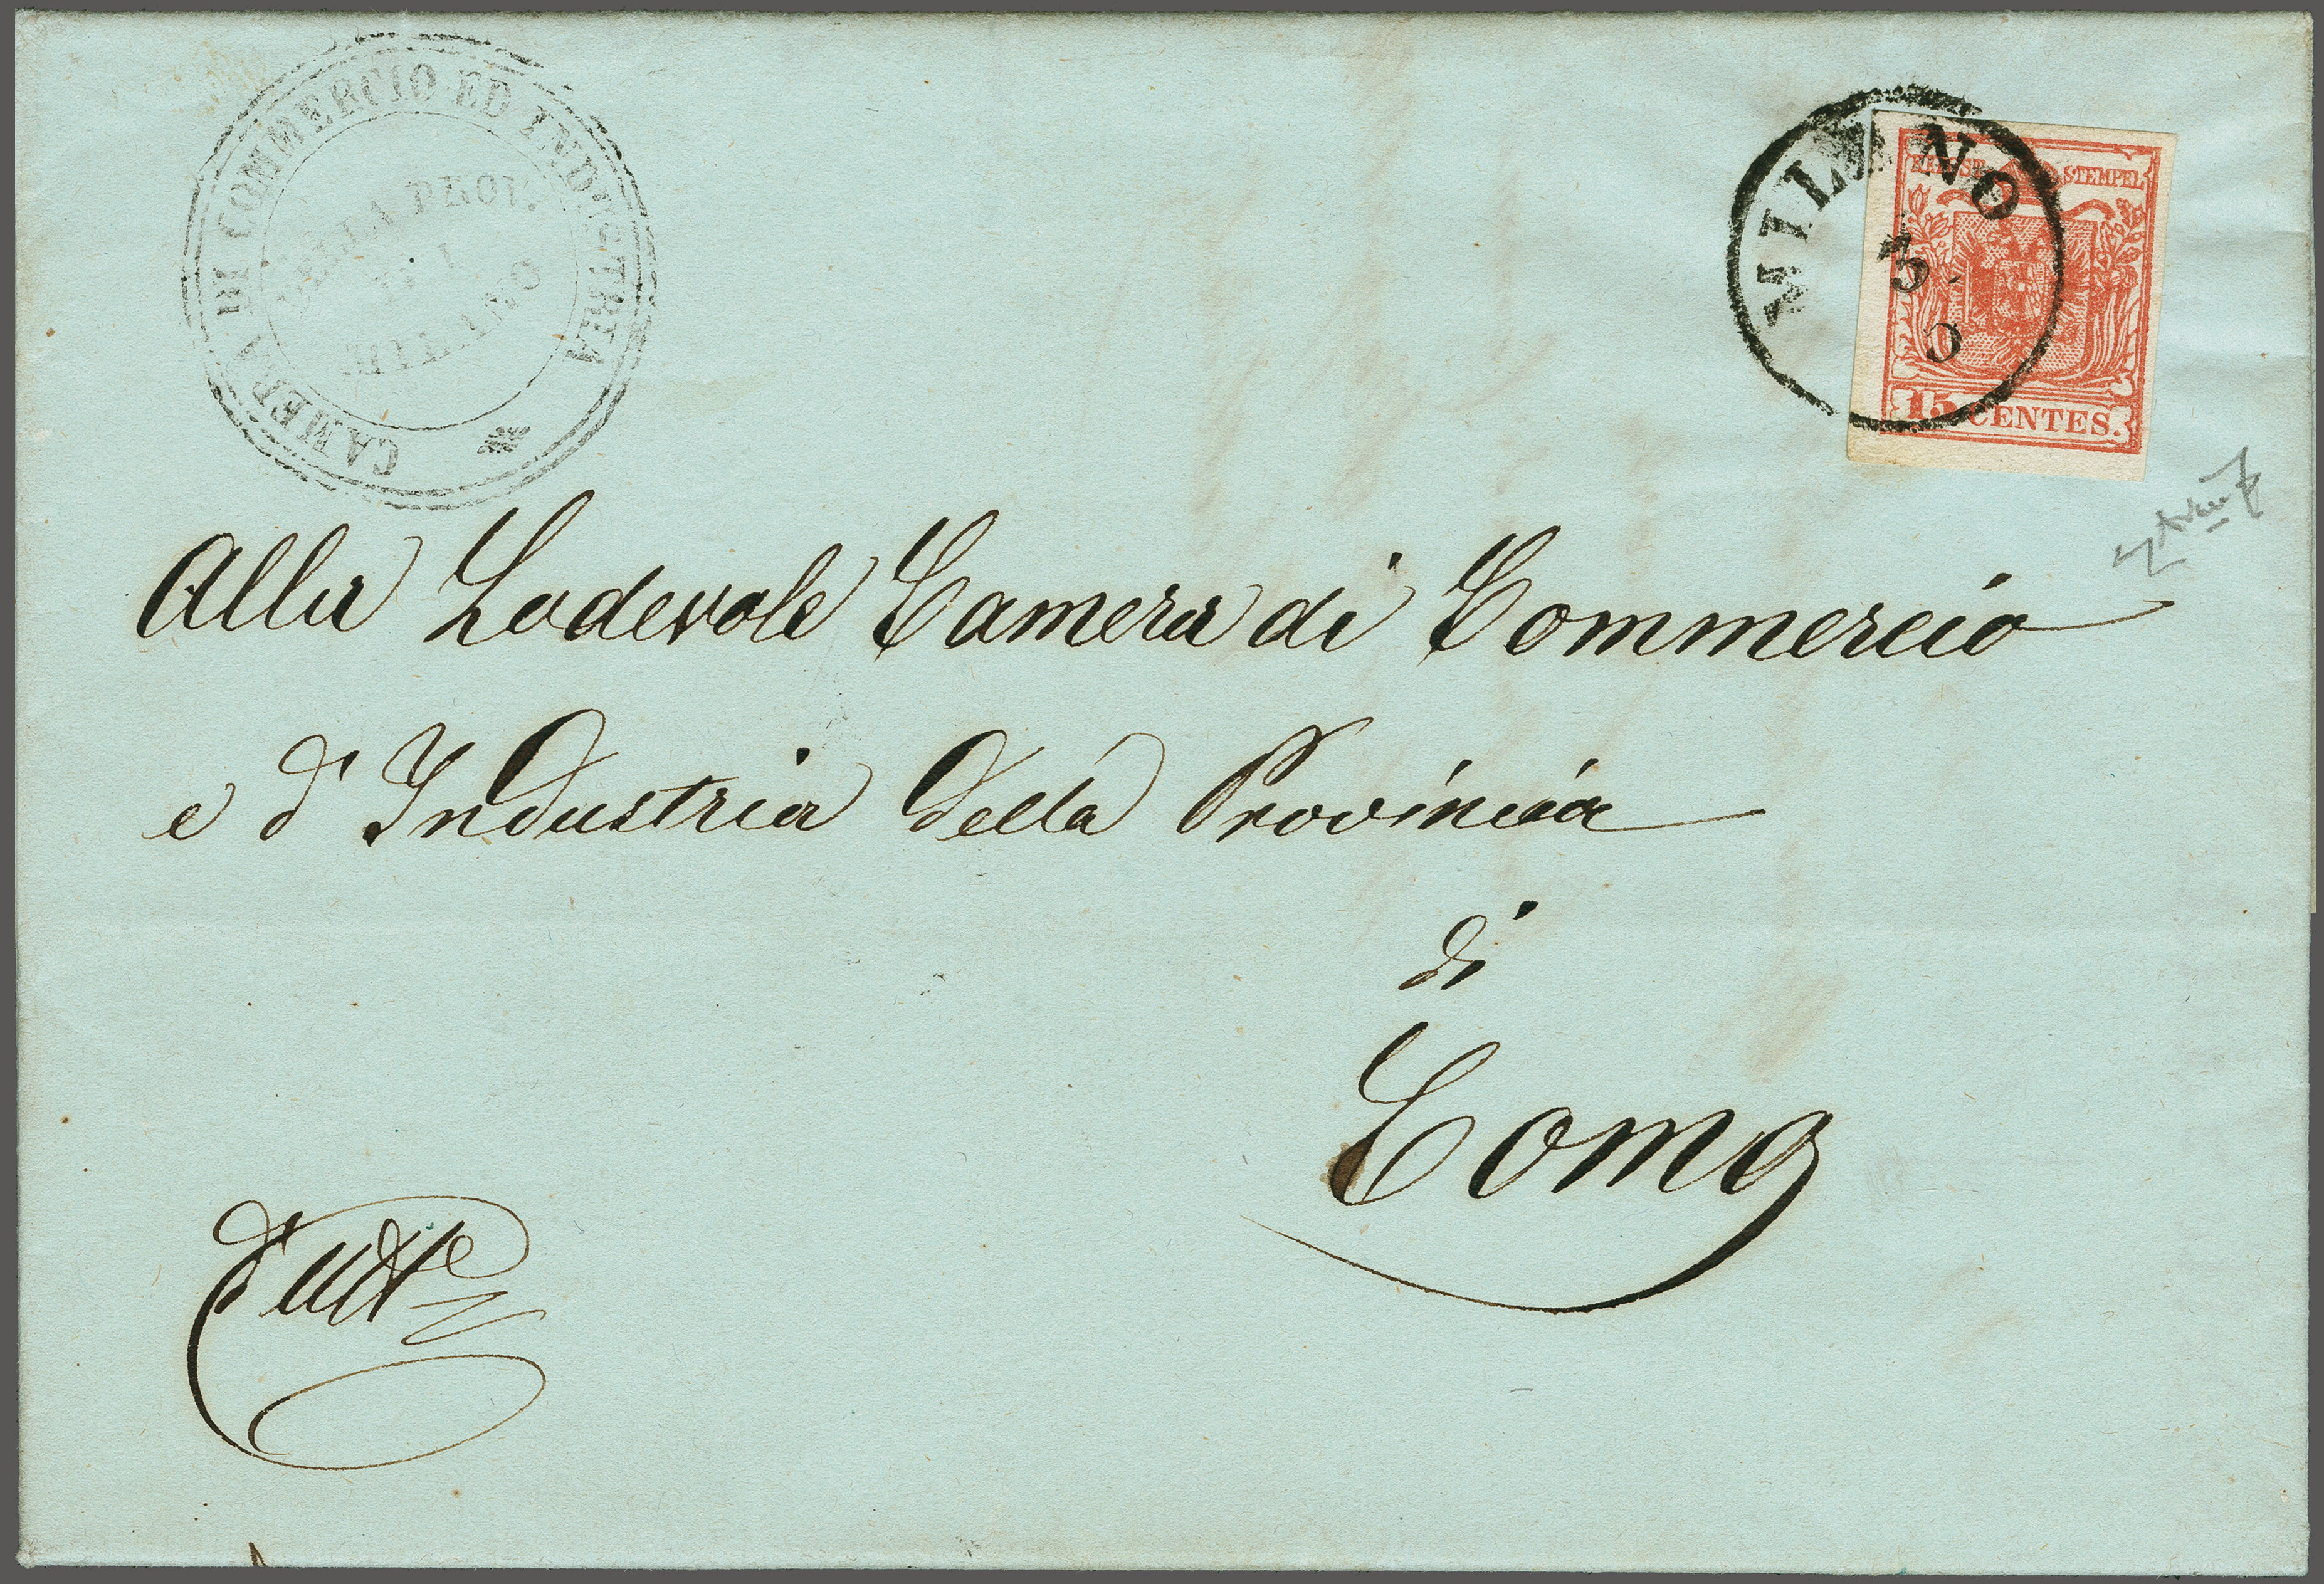 CAMERA DI COMMERCIO ED INDUSTRIA
DELLA PROV.
DI
MILANO
MILANO
3
5
KK POST STEMPEL
15 CENTES.
Alla Lodevole Camera di Commercio
e d'Industria della Provincia
di
Como
d'uff°